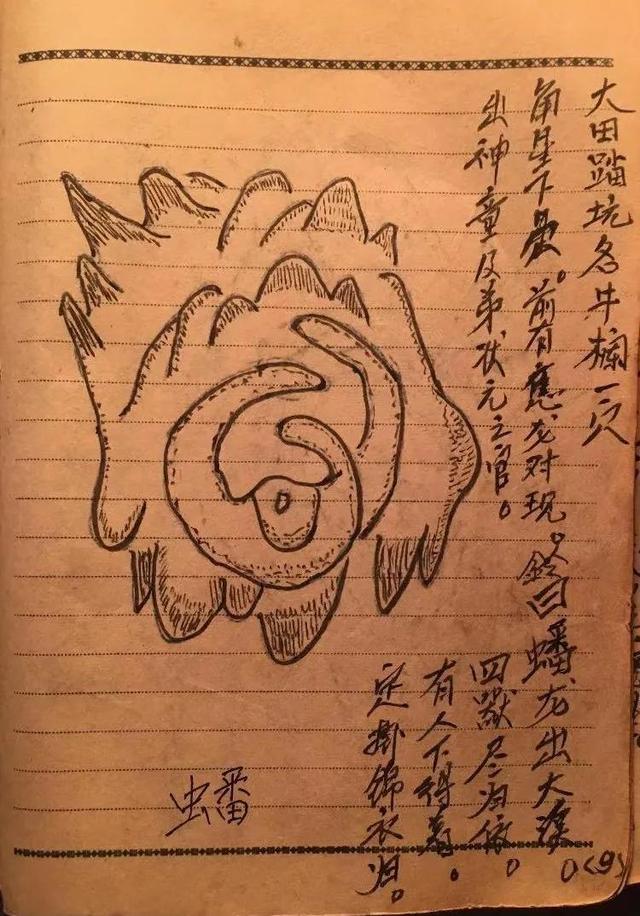 大田踏坑名牛栏一穴
角星下是。前有应龙对现。钤曰蟠龙出大漠
出神童及弟状元之官。
四兽尽归依。
有人下得着。
定掛锦衣归。
蟠
(9)